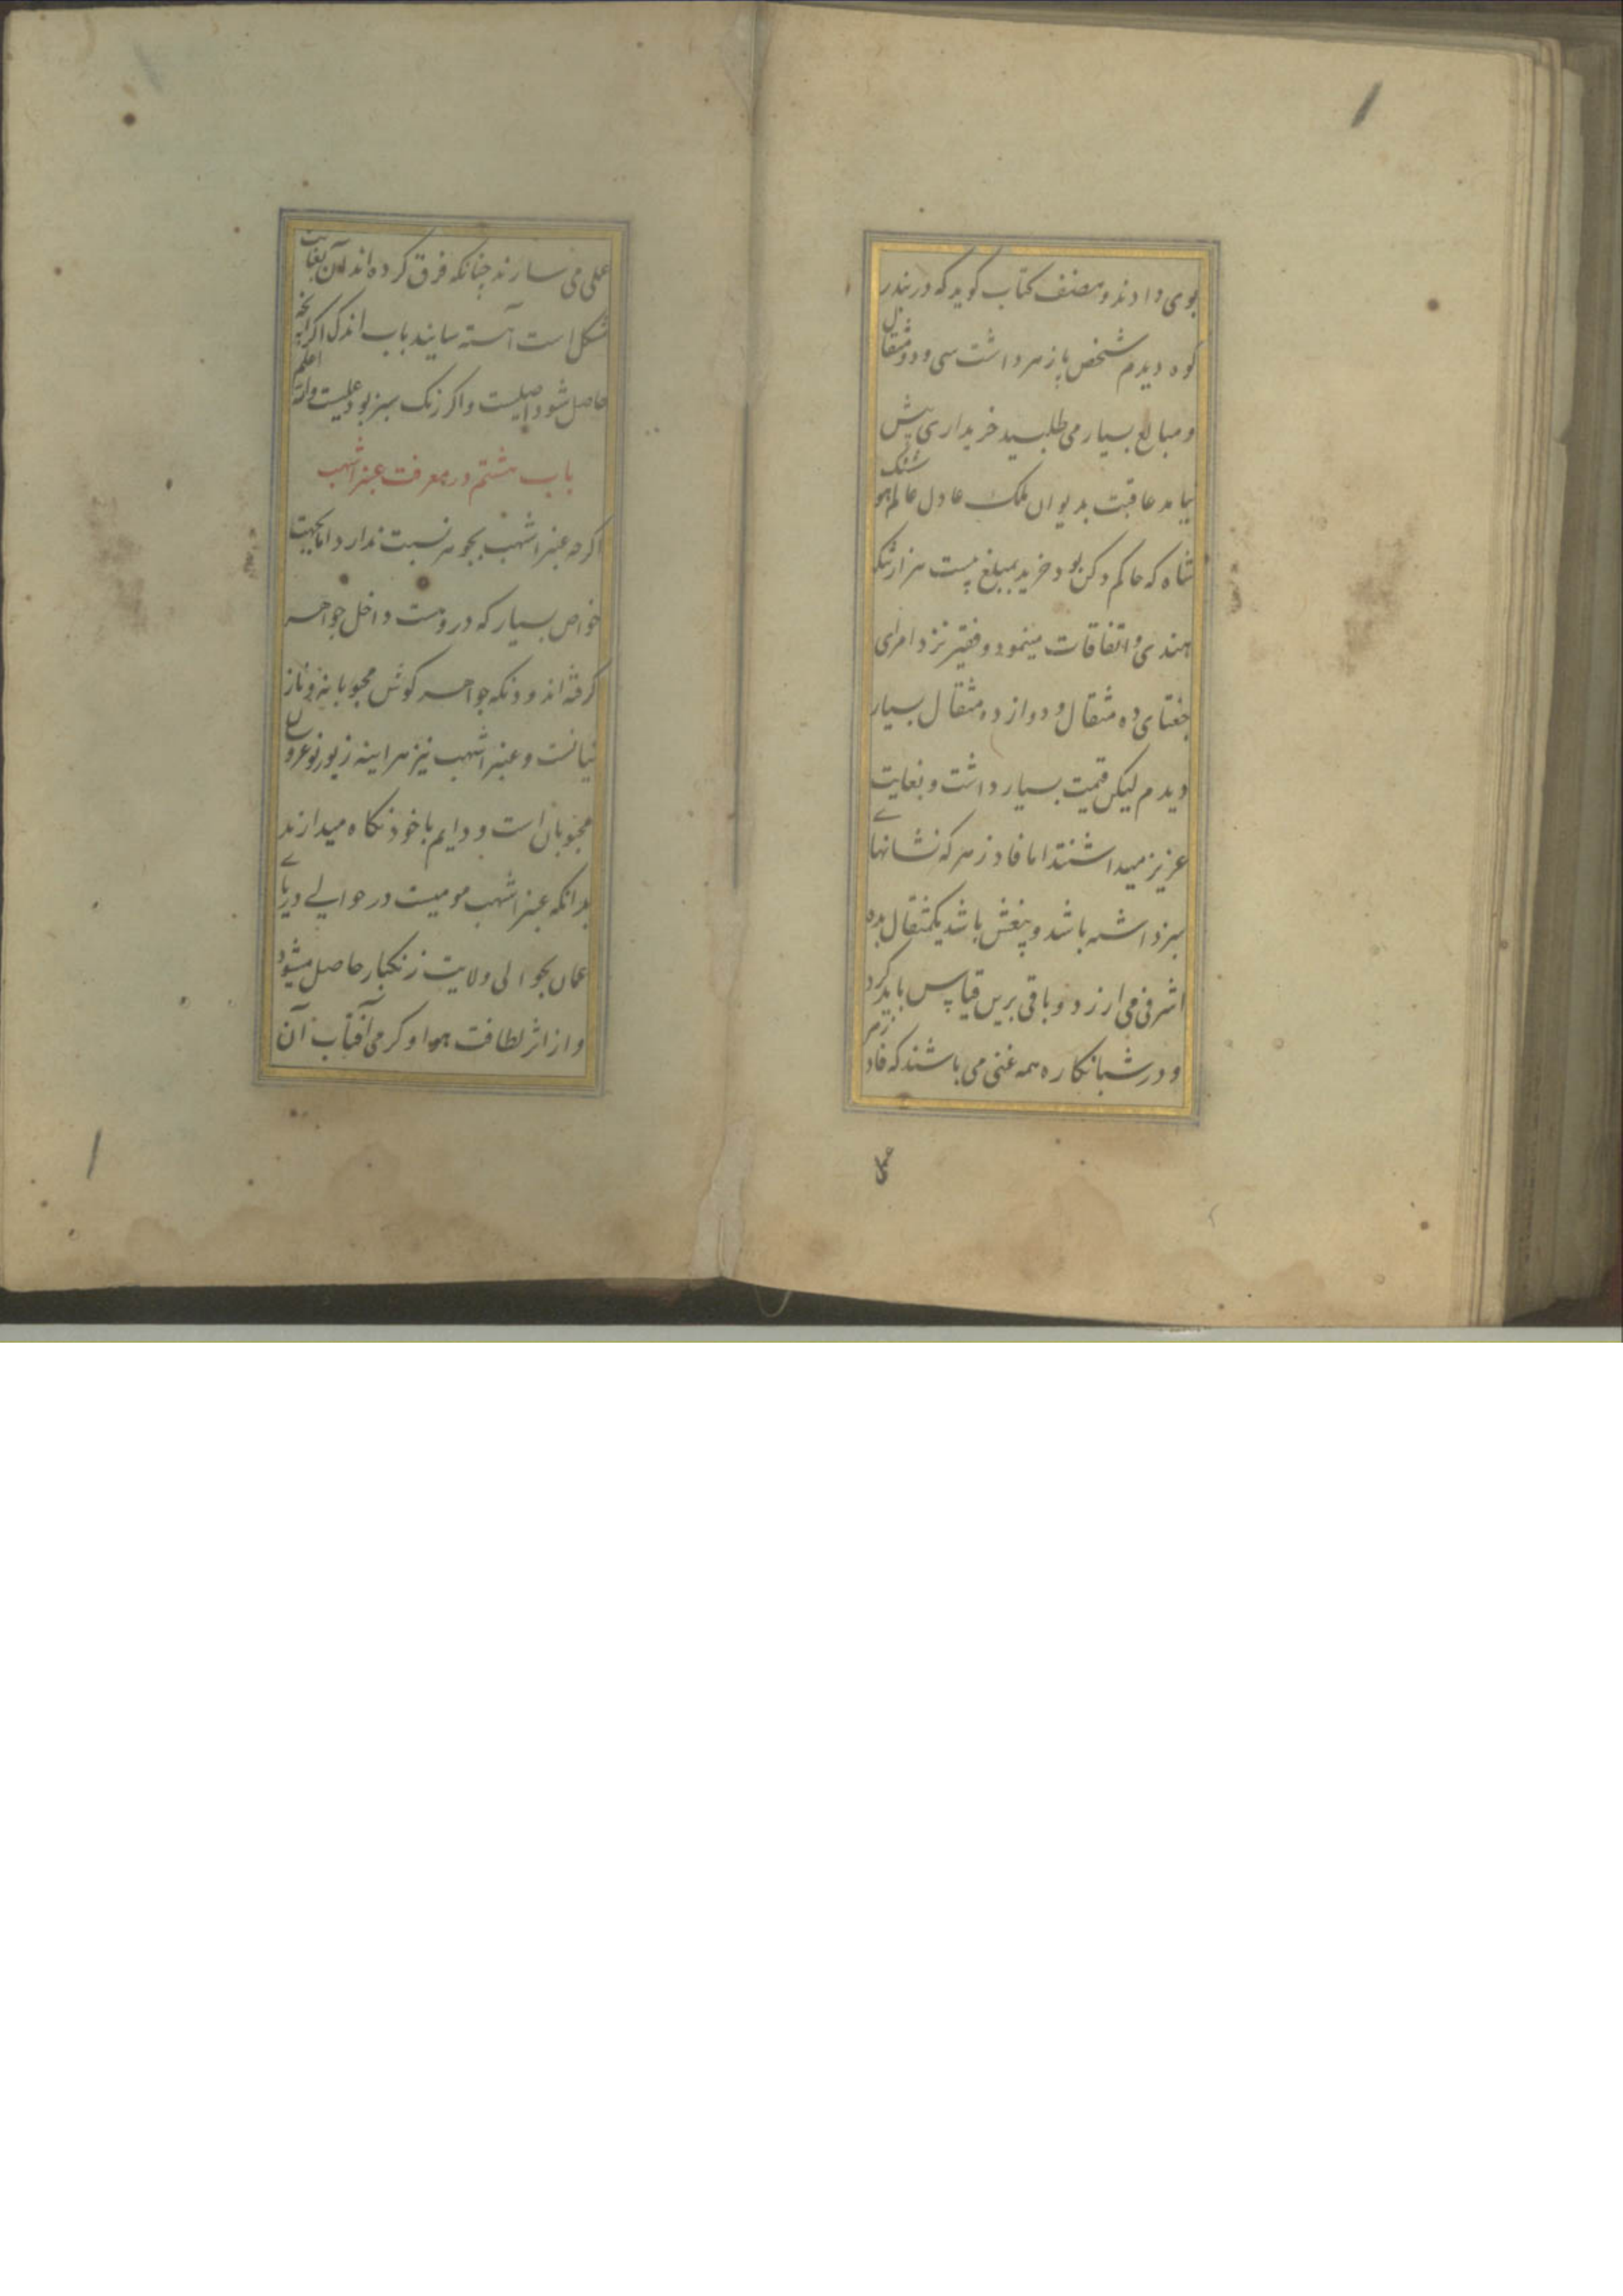 بوی دادند و مصنف کتاب گوید که در بندر
کوه دیدم شخص پازهر داشت سی و دو مثقال
و مبالغ بسیار می طلبید خریداری پیش
نیامد عاقبت بدیوان ملک عادل عالم هوشنگ
شاه که حاکم دکن بود خرید بمبلغ بیست هزار تنکه
هندی و اتفاقات مینمود و فقیر نزد امرای
جغتای ده مثقال و دوازده مثقال بسیار
دیدم لیکن قیمت بسیار داشت و بغایت
عزیز میداشتند اما فادزهر که نشانهای
سبز داشته باشد و بیغش باشد یکمثقال بده
اشرفی می ارزد و باقی برین قیاس باید کرد
و در شبانکاره همه غنی می باشند که فادزهر
عملی
عملی می سازند چنانکه فرق کرده اند آن بغایت
مشکل است آهسته سایند باب اندک اگر آنچه
حاصل شود اصلیست و اکر زنک سبز بود عملیست والله اعلم
باب هشتم در معرفت عنبر اشهب
اکرچه عنبر اشهب بجوهر نسبت ندارد اما بجهت
خواص بسیار که دروست داخل جواهر
کرفته اند و دیکه جواهر کوش محبوبا بنرو ناز
نیانست و عنبر اشهب نیز هراینه زیور نوعروسان
محبوبان است و دایم با خود نکاه میدارند
بدانکه عنبر اشهب مومیست در حوالی دریای
عمان بحوالی ولایت زنکبار حاصل میشود
و از اثر لطافت هوا و کرمی آفتاب آن